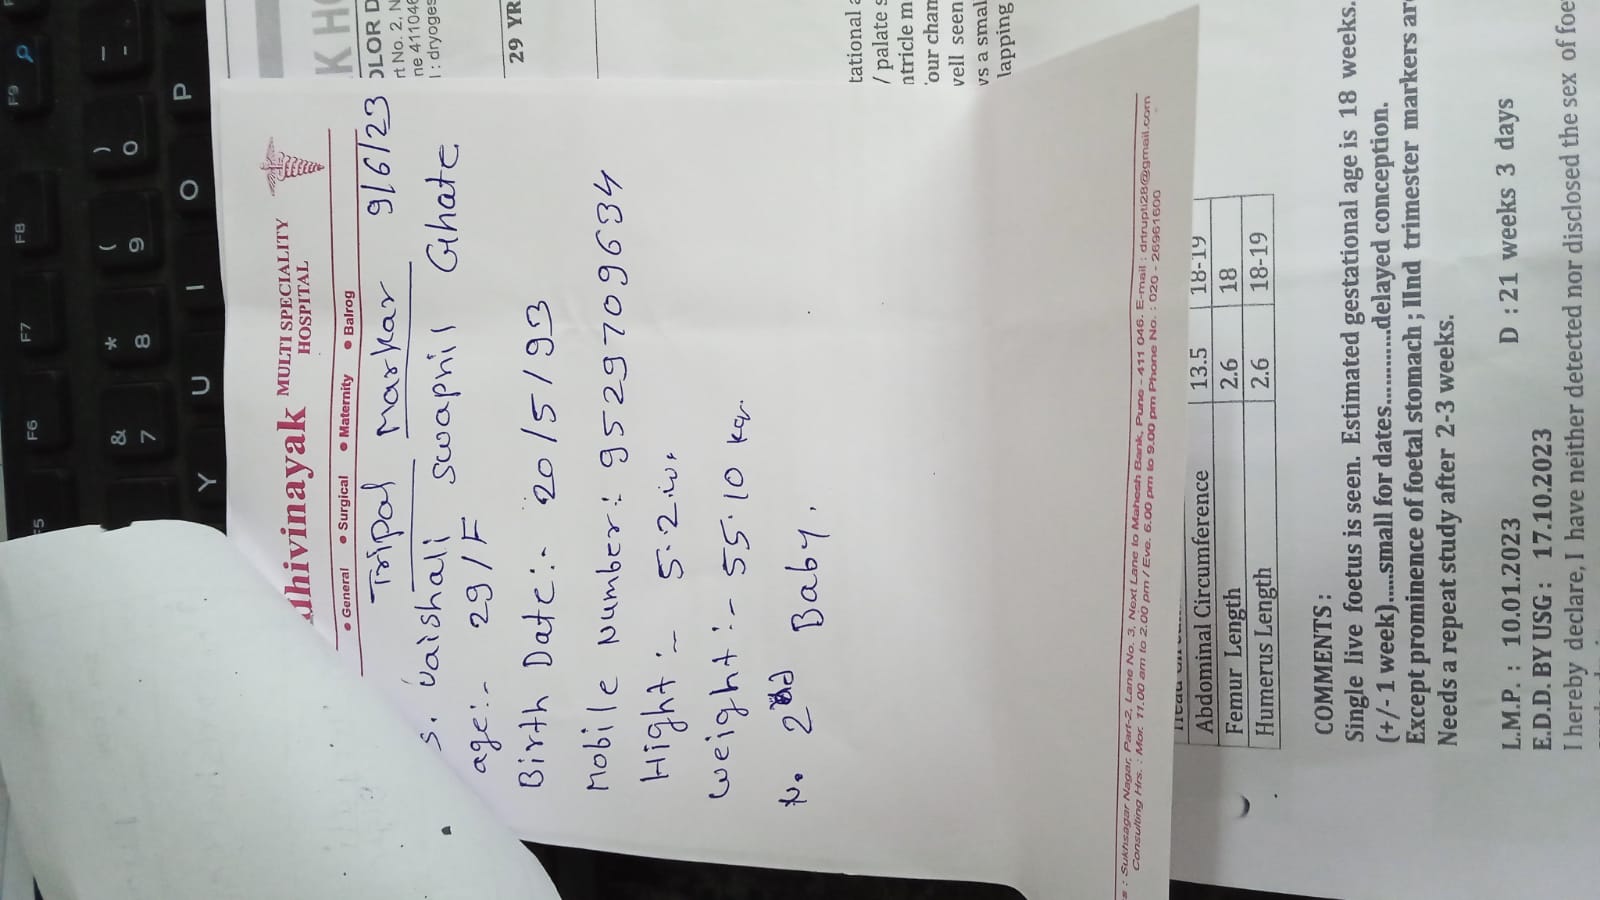 dhivinayak MULTI SPECIALITY
HOSPITAL
• General • Surgical • Maternity • Balrog
Tripal Markar 9/6/23
s. Vaishali Swapnil Ghate
age:- 29/F
Birth Date:- 20/5/93
Mobile Number: 9529709634
Hight :- 5.2
Weight :- 55.10 kg.
N. 2nd Baby.
: Sukhsagar Nagar, Part-2, Lane No. 3, Next Lane to Mahesh Bank, Pune - 411 046. E-mail : drtrupti28@gmail.com
Consulting Hrs. : Mor. 11.00 am to 2.00 pm / Eve. 6.00 pm to 9.00 pm Phone No. : 020 - 26961600
K HO
OLOR D
rt No. 2, N
ne 411046
l : dryoges
29 YR
tational a
/ palate s
ntricle m
our cham
vell seen
vs a smal
lapping
Abdominal Circumference 13.5 18-19
Femur Length 2.6 18
Humerus Length 2.6 18-19
COMMENTS :
Single live foetus is seen. Estimated gestational age is 18 weeks.
(+/- 1 week).....small for dates...............delayed conception.
Except prominence of foetal stomach ; IInd trimester markers ar
Needs a repeat study after 2-3 weeks.
L.M.P. : 10.01.2023 D : 21 weeks 3 days
E.D.D. BY USG : 17.10.2023
I hereby declare, I have neither detected nor disclosed the sex of foe
F5 F6 F7 F8 F9
& 7 * 8 ( 9 ) 0 _ -
Y U I O P